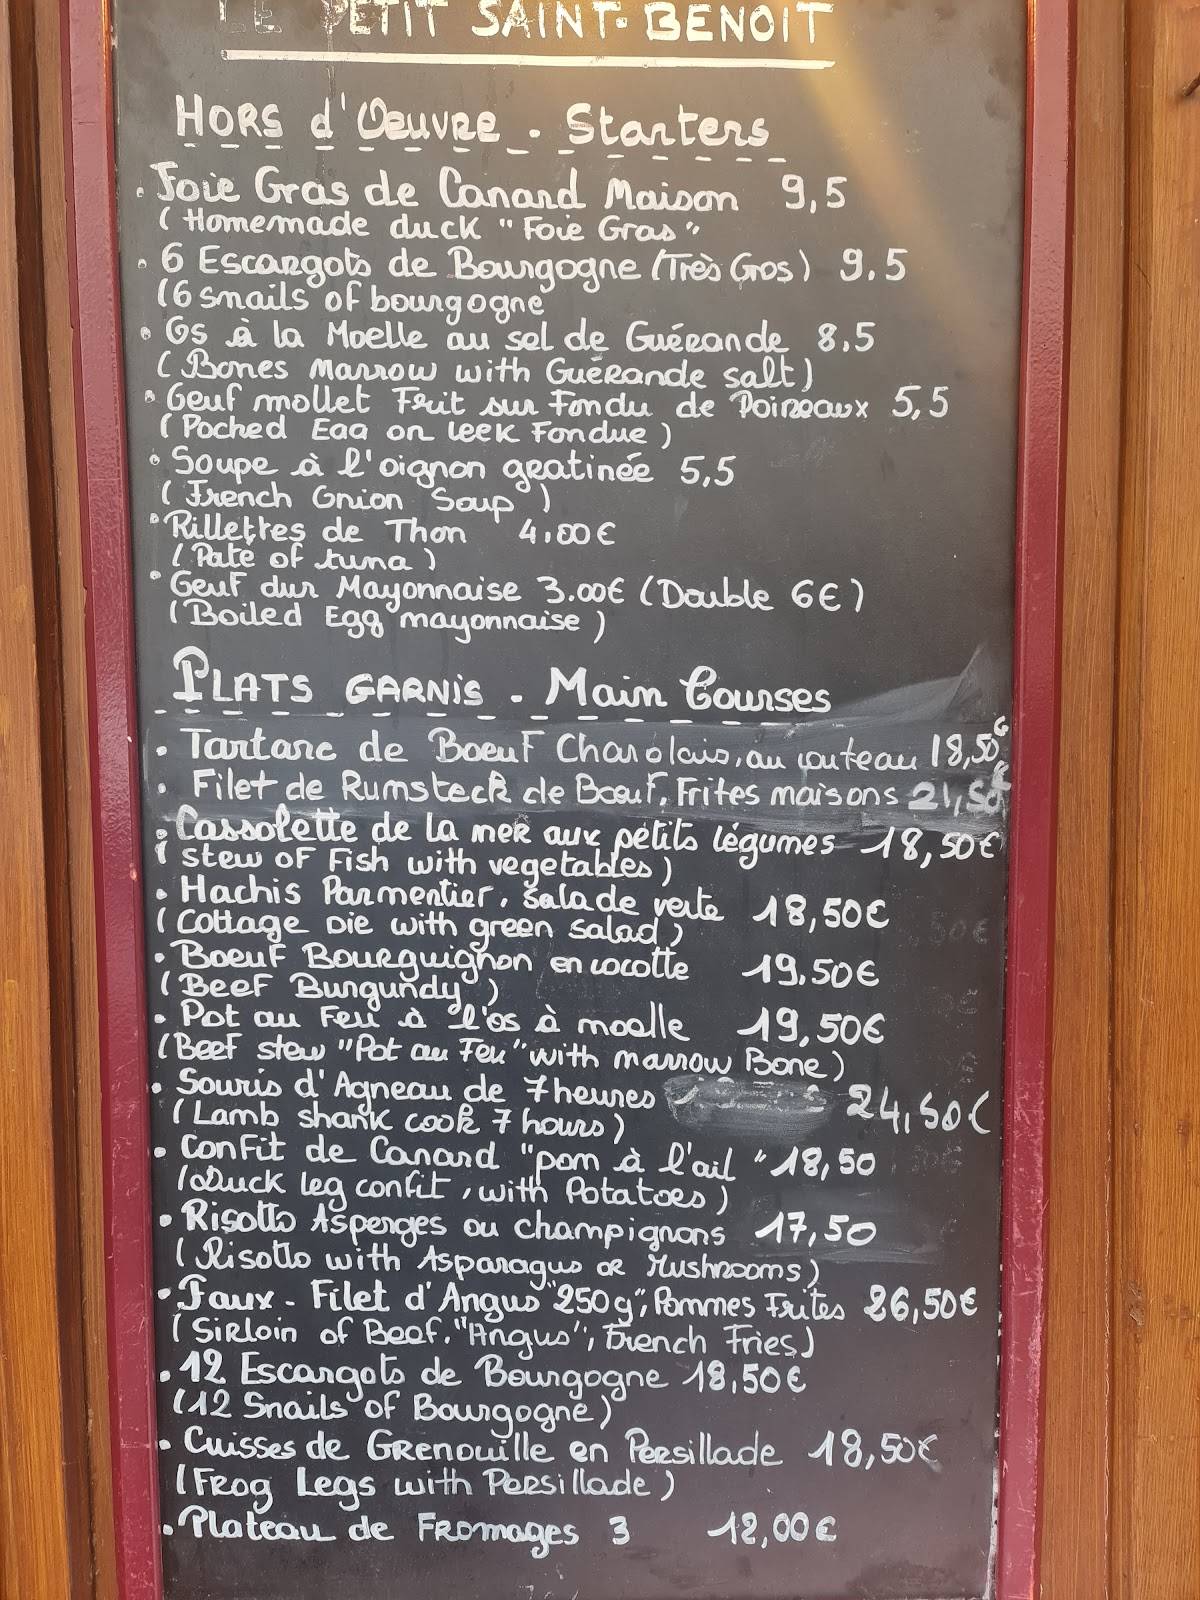 LE PETIT SAINT-BENOIT
HORS d'Oeuvre - Starters
• Foie Gras de Canard Maison 9,5
(Homemade duck "Foie Gras"
• 6 Escargots de Bourgogne (Très Gros) 9.5
(6 snails of bourgogne
• Os à la Moelle au sel de Guérande 8.5
(Bones Marrow with Guérande salt)
• Oeuf mollet Frit sur Fondu de Poireaux 5,5
(Poched Egg on leek Fondue)
• Soupe à l'oignon gratinée 5,5
(French Onion Soup)
• Rillettes de Thon 4.00€
(Paté of tuna)
• Oeuf dur Mayonnaise 3.00€ (Double 6€)
(Boiled Egg mayonnaise)
PLATS GARNIS - Main Courses
• Tartare de Boeuf Charolais, au couteau 18,50€
• Filet de Rumsteck de Boeuf, Frites maisons 21,50€
• Cassolette de la mer aux petits légumes 18,50€
(stew of Fish with vegetables)
• Hachis Parmentier, salade verte 18,50€
(Cottage Pie with green salad)
• Boeuf Bourguignon en cocotte 19,50€
(Beef Burgundy)
• Pot au Feu à l'os à moelle 19,50€
(Beef stew "Pot au Feu" with marrow Bone)
• Souris d'Agneau de 7 heures 24,50€
(Lamb shank cook 7 hours)
• Confit de Canard "pom à l'ail" 18,50
(Duck leg confit, with Potatoes)
• Risotto Asperges ou champignons 17,50
(Risotto with Asparagus or Mushrooms)
• Faux-Filet d'Angus "250g", Pommes Frites 26,50€
(Sirloin of Beef, "Angus", French Fries)
• 12 Escargots de Bourgogne 18,50€
(12 Snails of Bourgogne)
• Cuisses de Grenouille en Persillade 18,50€
(Frog Legs with Persillade)
• Plateau de Fromages 3 12,00€